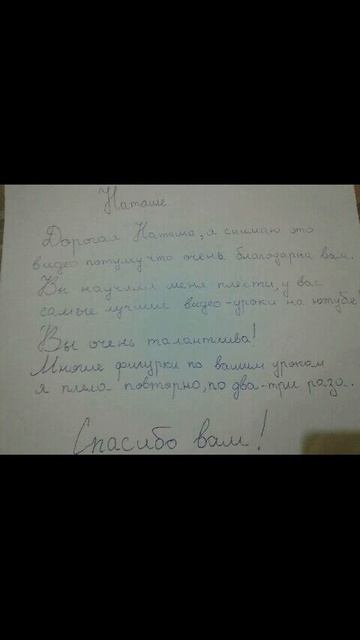 Наташе
Дорогая Наташа, я снимаю это
видео потому что очень благодарна вам.
Вы научили меня плести, у вас
самые лучшие видео-уроки на ютубе!
Вы очень талантлива!
Многие фигурки по вашим урокам
я плела повторно, по два-три раза.
Спасибо вам!